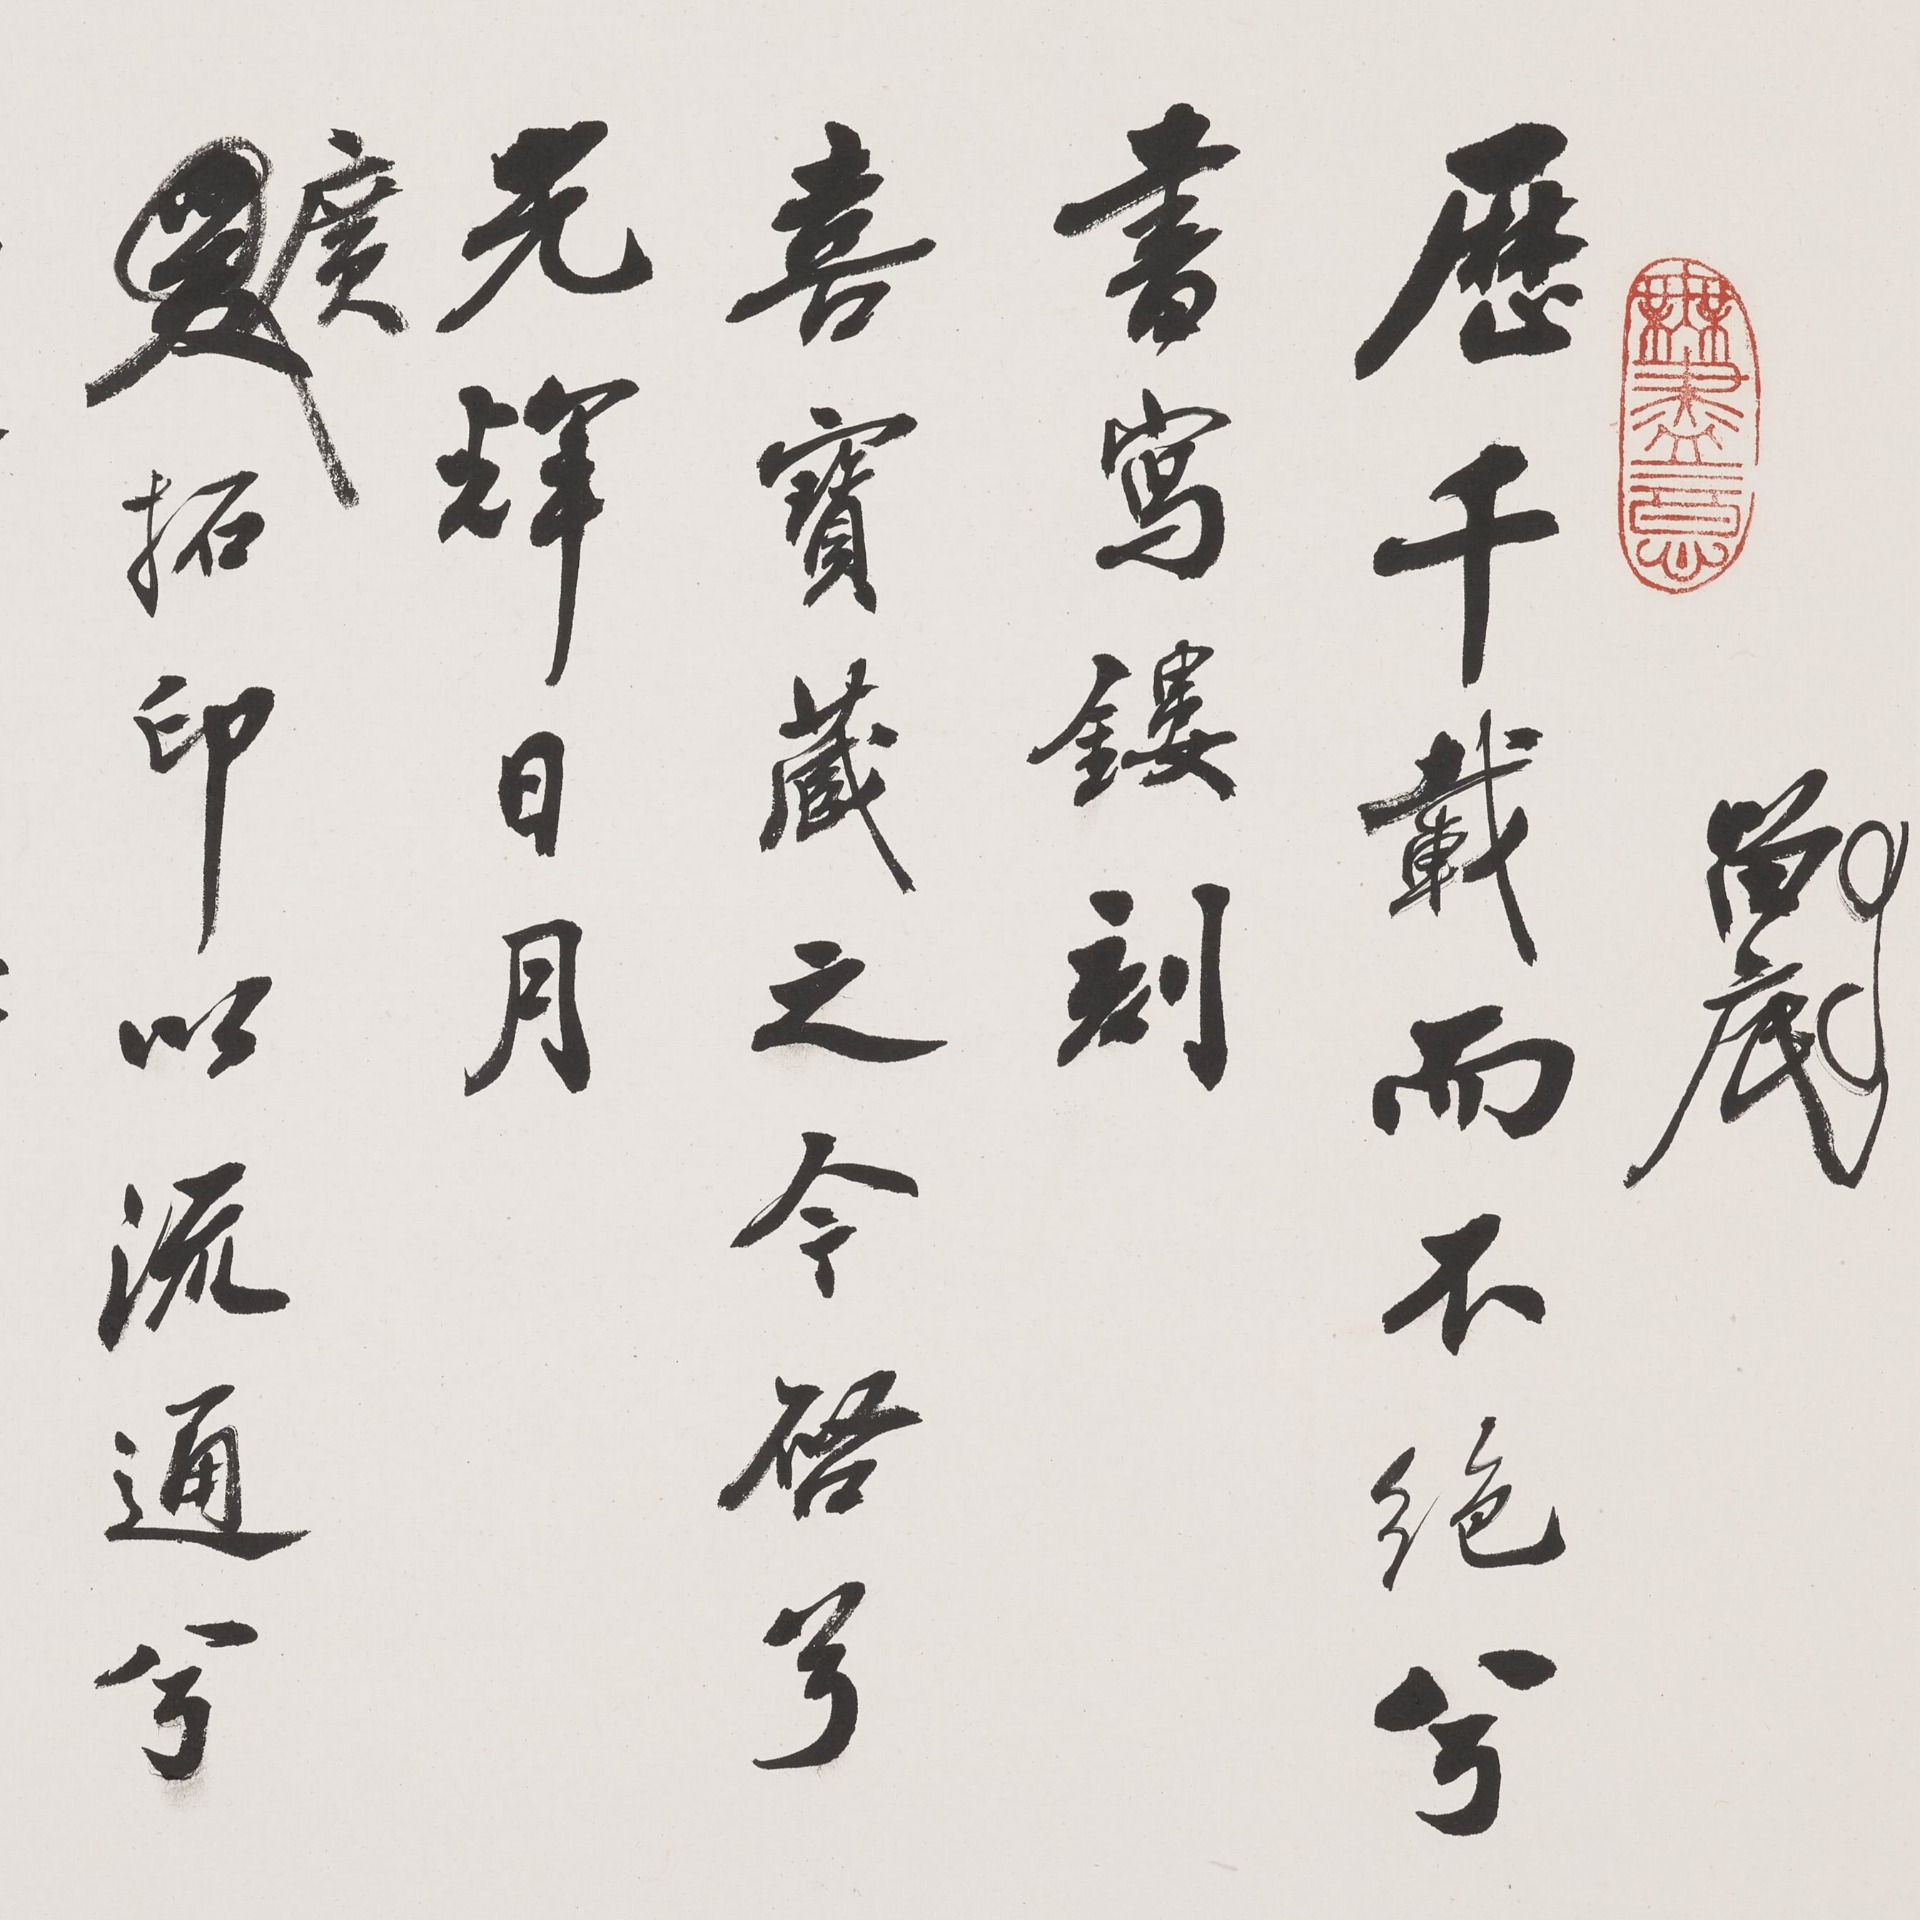 留底
歷千載而不绝兮
書寫鏤刻
喜寶藏之今啓兮
光輝日月
廣
拓印以流通兮